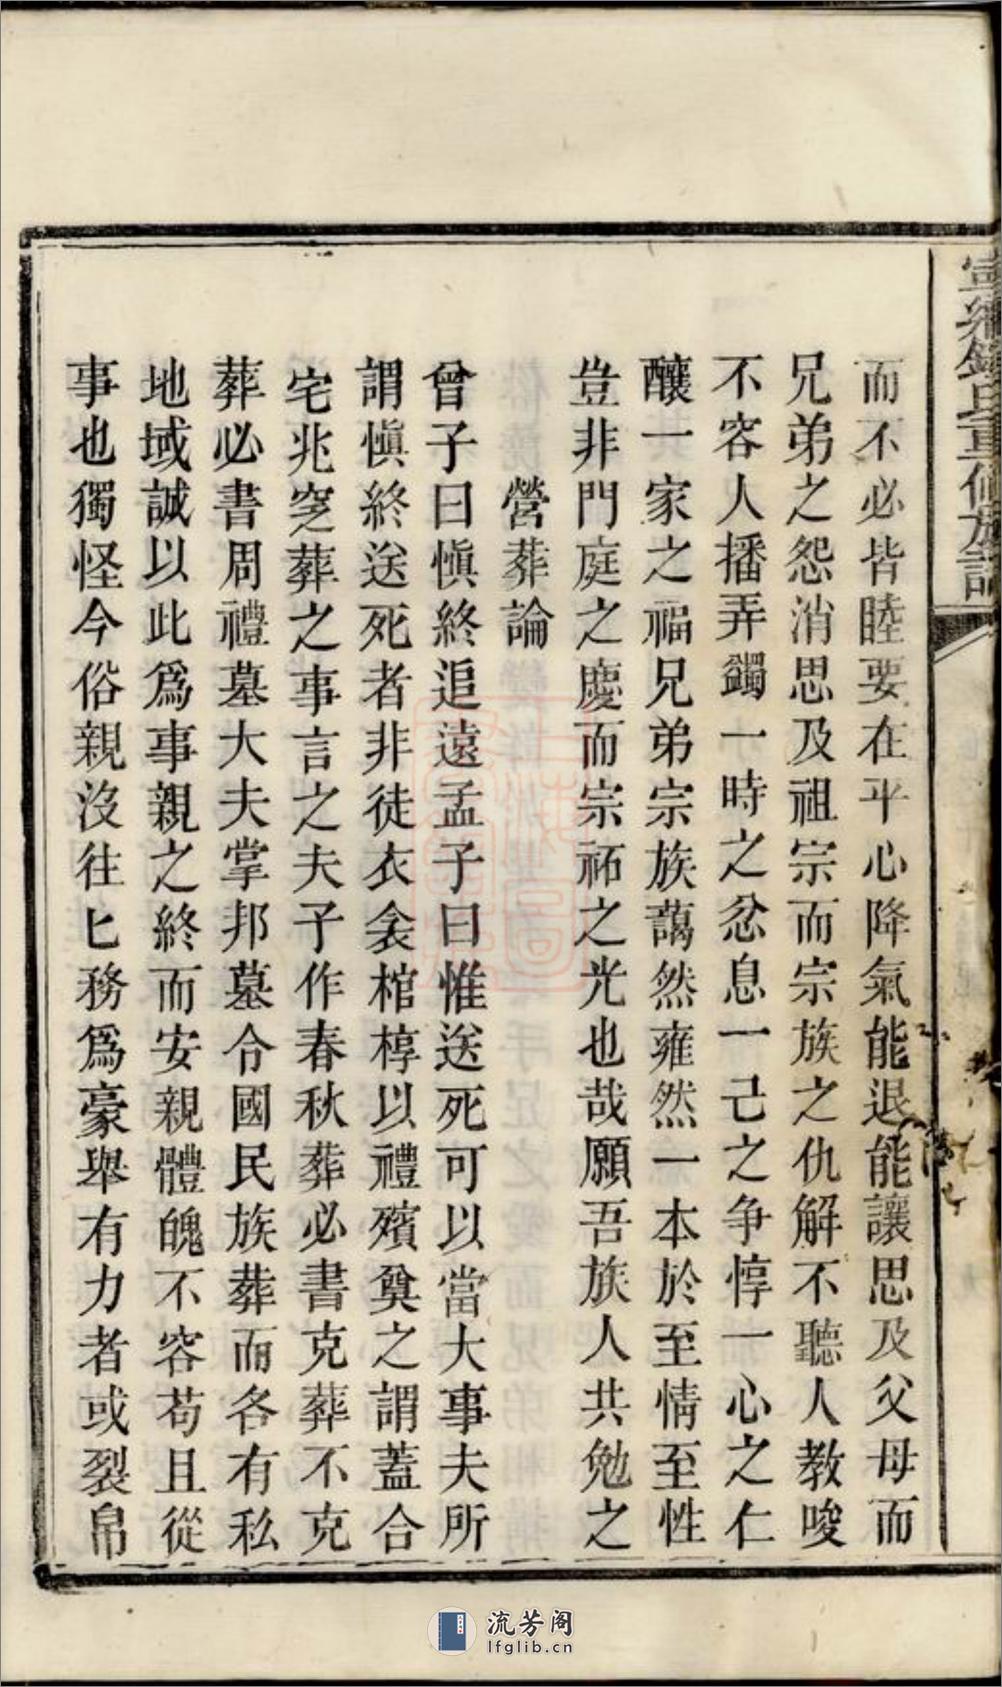 而不必皆睦要在平心降氣能退能讓思及父母而
兄弟之怨消思及祖宗而宗族之仇解不聽人教唆
不容人播弄蠲一時之忿息一己之争惇一心之仁
釀一家之福兄弟宗族藹然雍然一本於至情至性
豈非門庭之慶而宗祏之光也哉願吾族人共勉之
營葬論
曾子曰慎終追遠孟子曰惟送死可以當大事夫所
謂慎終送死者非徒衣衾棺椁以禮殯奠之謂蓋合
宅兆窆葬之事言之夫子作春秋葬必書克葬不克
葬必書周禮墓大夫掌邦墓令國民族葬而各有私
地域誠以此為事親之終而安親體魄不容苟且從
事也獨怪今俗親沒往匕務為豪舉有力者或裂帛
流芳阁
lfglib.cn